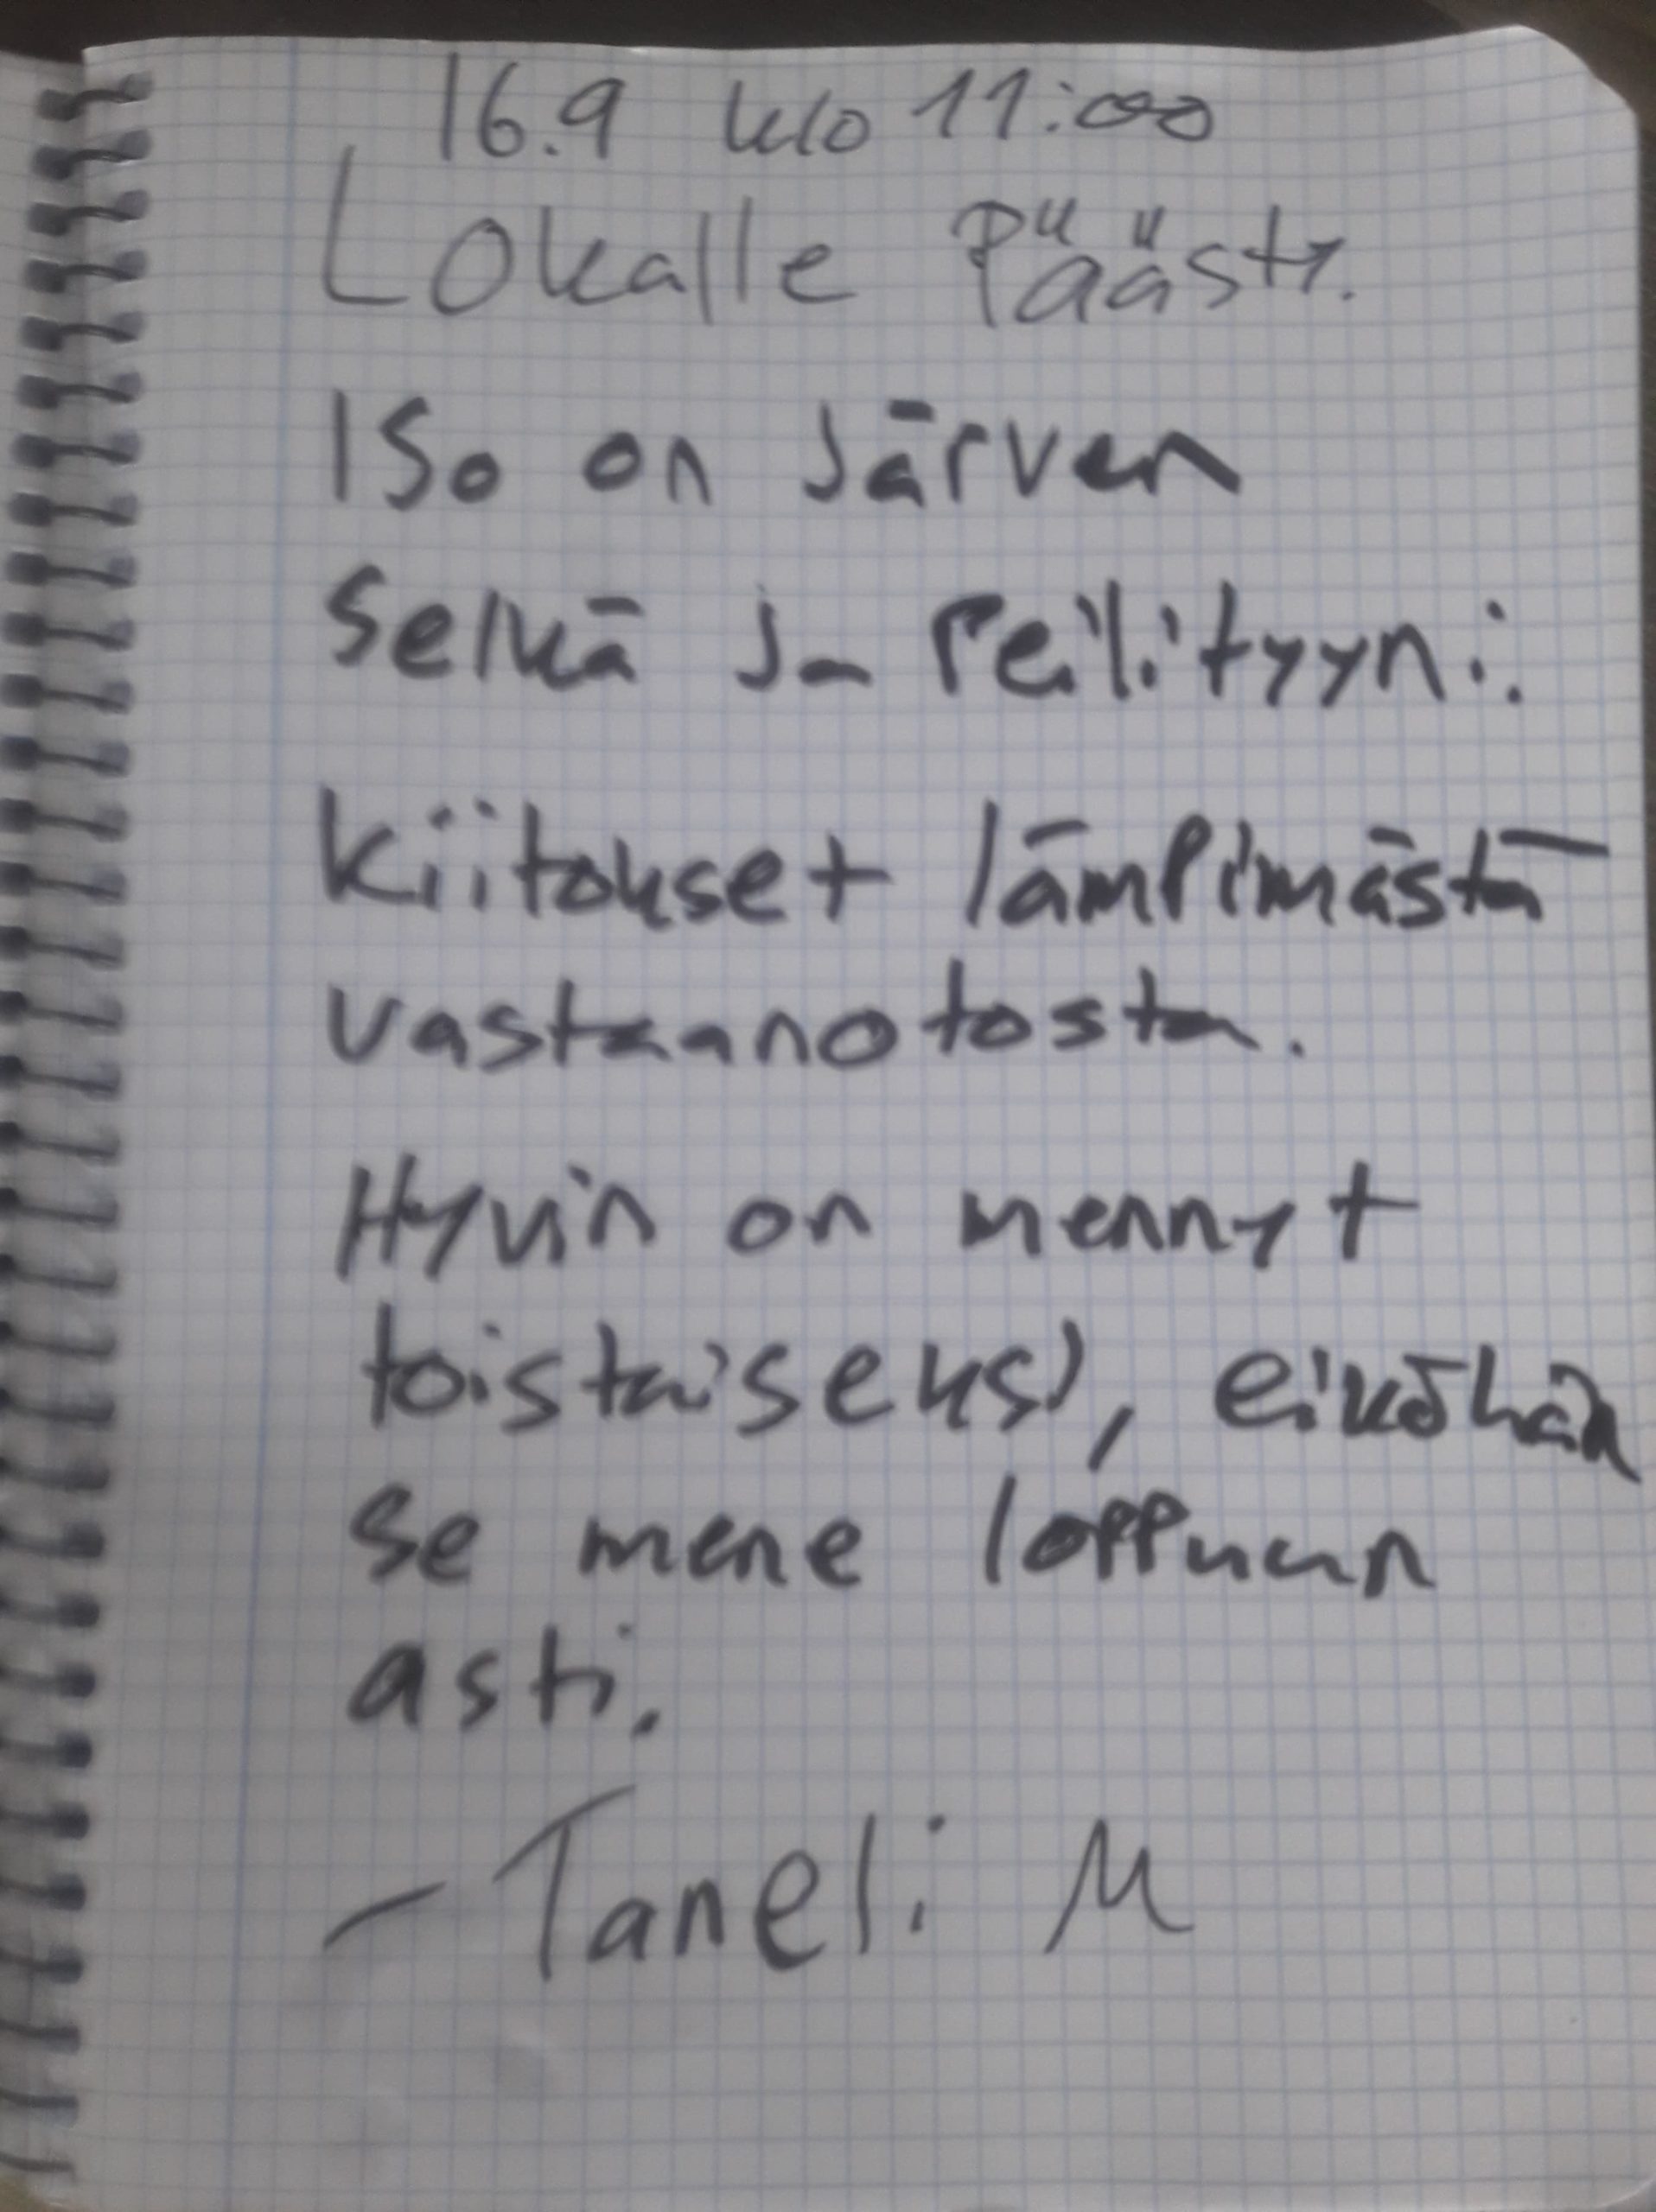 16.9 klo 11:00
Lokalle Päästy.
Iso on Järven
selkä ja Peilityyni.
Kiitokset lämpimästä
vastaanotosta.
Hyvin on mennyt
toistaiseksi, eiköhän
se mene loppuun
asti.
- Taneli M